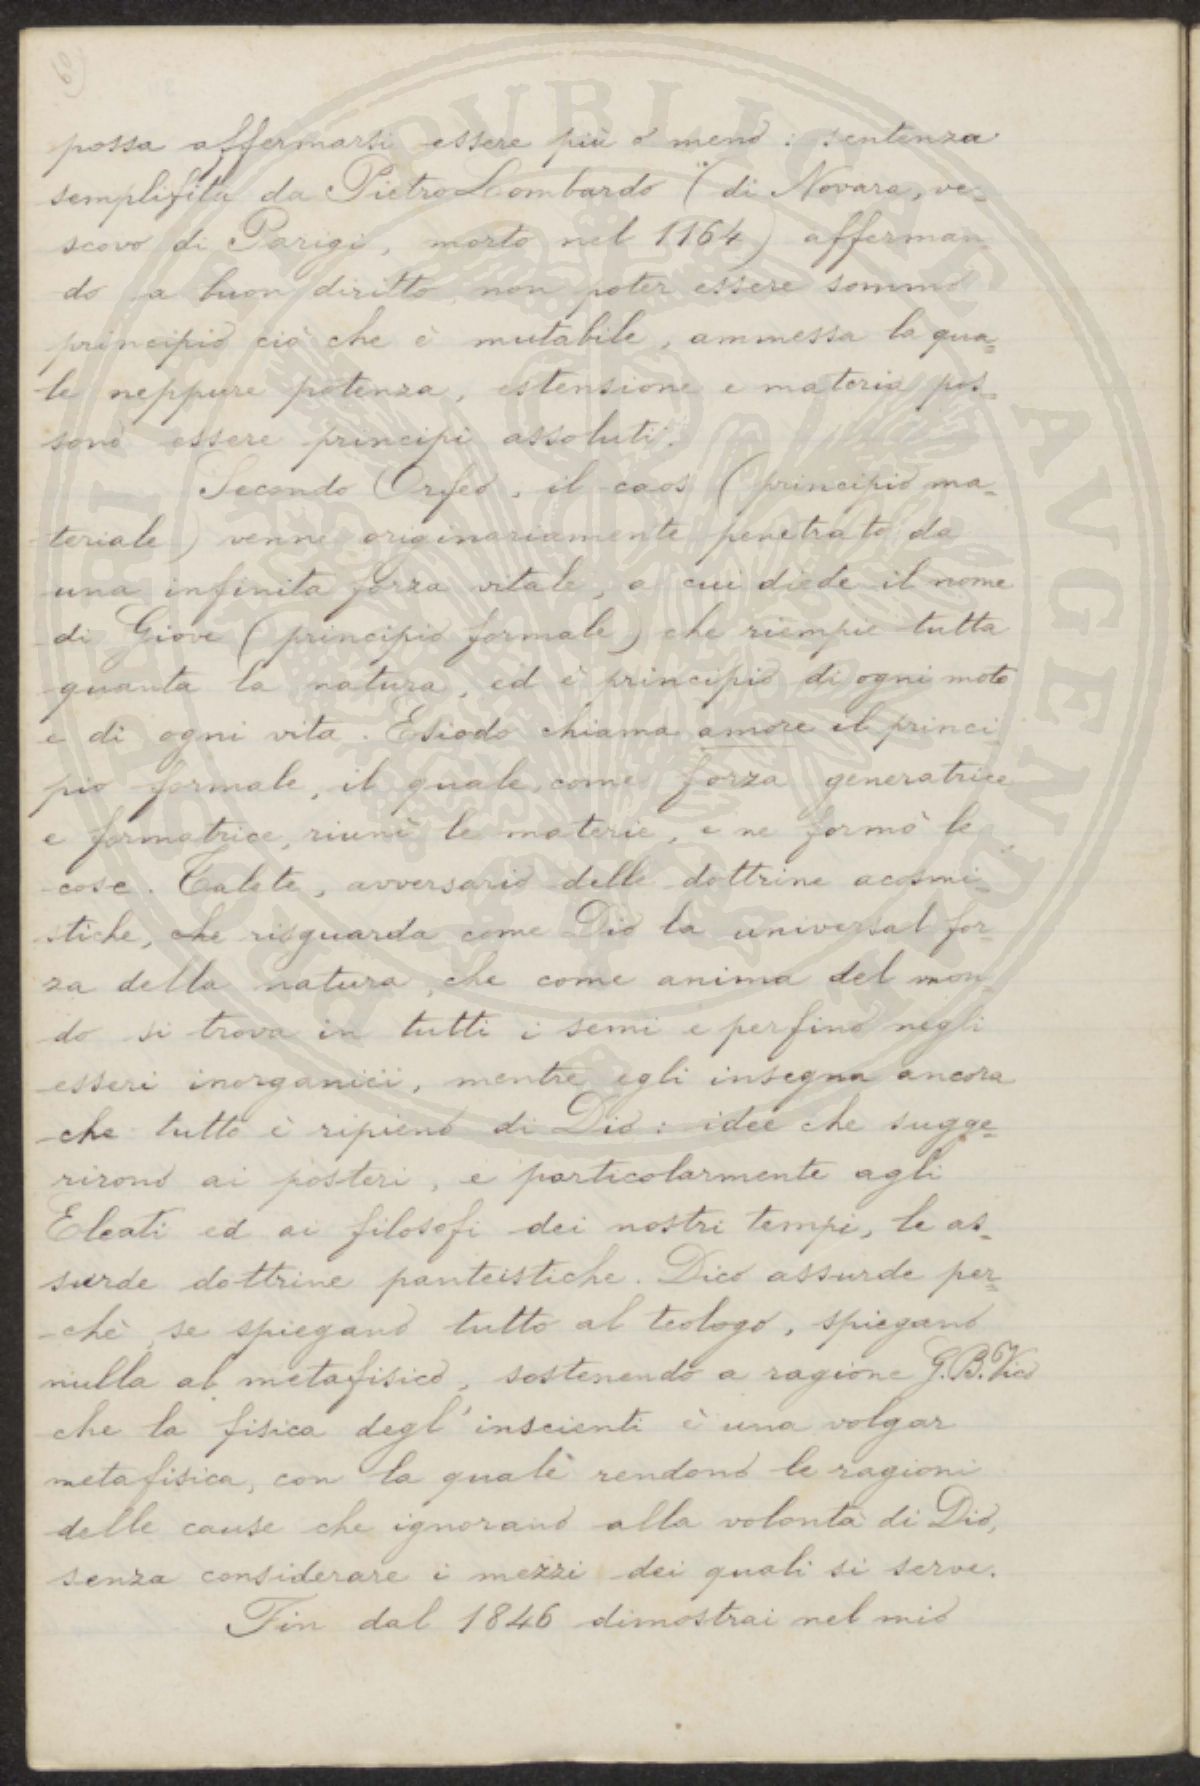 possa affermarsi essere più o meno: sentenza
semplifita da Pietro Lombardo (di Novara, ve=
scovo di Parigi, morto nel 1164) afferman
do a buon diritto, non poter essere sommo
principio ciò che è mutabile, ammessa la qua=
le neppure potenza, estensione e materia pos=
sono essere principi assoluti.
Secondo Orfeo, il caos (principio ma=
teriale) venne originariamente penetrato da
una infinita forza vitale, a cui diede il nome
di Giove (principio formale) che riempie tutta
quanta la natura, ed è principio di ogni moto
e di ogni vita. Esiodo chiama amore il princi
pio formale, il quale, come forza generatrice
e formatrice, riunì le materie, e ne formò le
cose. Talete, avversario delle dottrine acosmi=
stiche, che risguarda come Dio la universal for=
za della natura, che come anima del mon=
do si trova in tutti i semi e perfino negli
esseri inorganici, mentre egli insegna ancora
che tutto è ripieno di Dio: idee che sugge=
rirono ai posteri, e particolarmente agli
Eleati ed ai filosofi dei nostri tempi, le as=
surde dottrine panteistiche. Dico assurde per=
chè, se spiegano tutto al teologo, spiegano
nulla al metafisico, sostenendo a ragione G. B. Vico
che la fisica degl' inscienti è una volgar
metafisica, con la quale rendono le ragioni
delle cause che ignorano alla volontà di Dio,
senza considerare i mezzi dei quali si serve.
Fin dal 1846 dimostrai nel mio